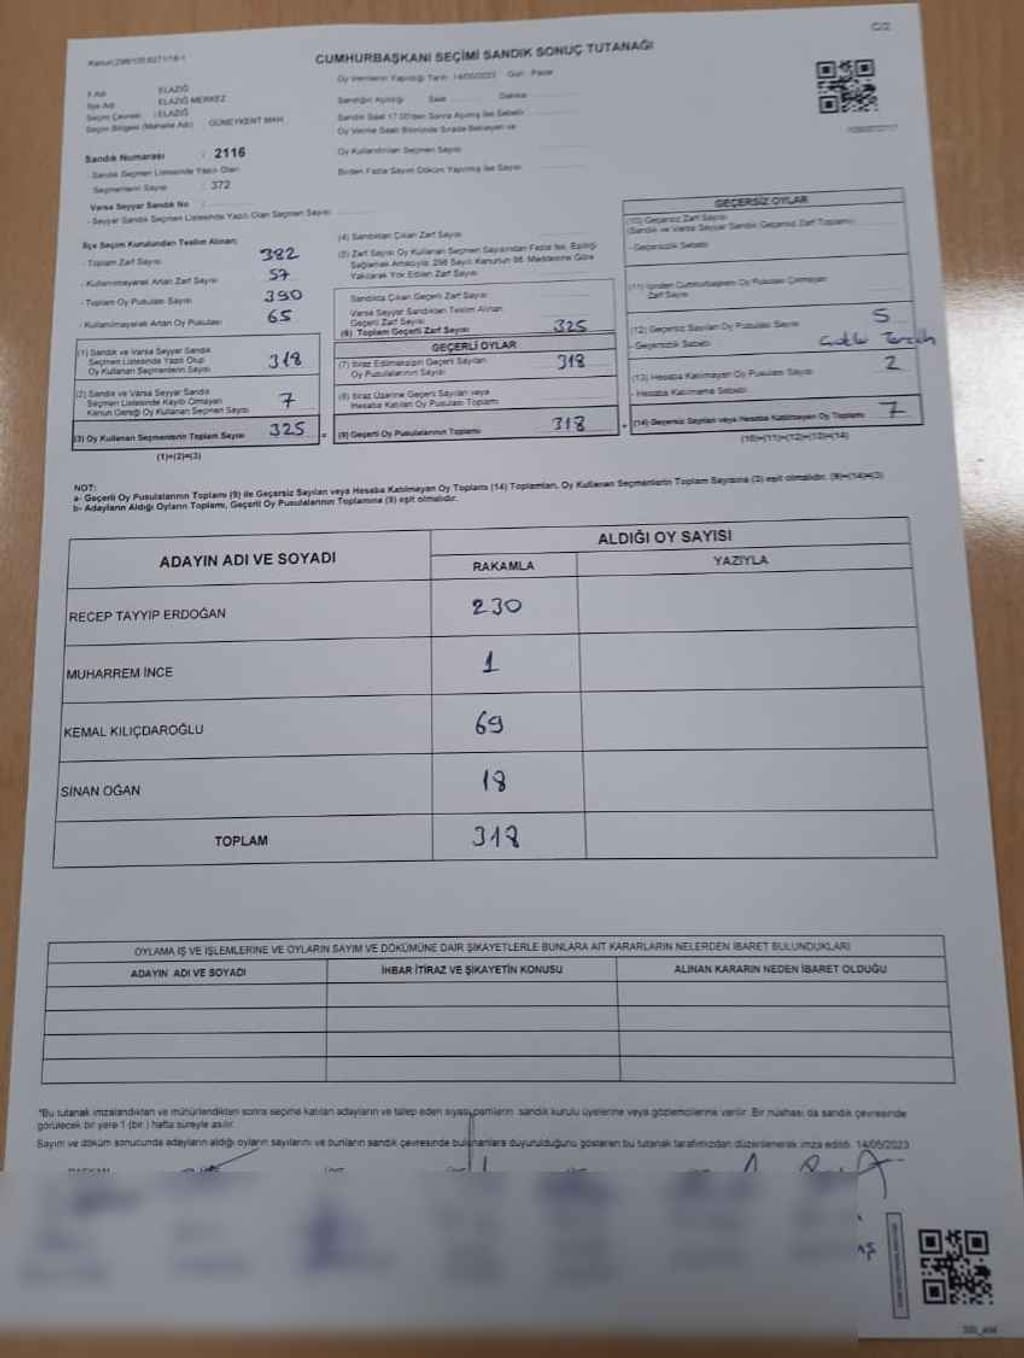 C/2
CUMHURBAŞKANI SEÇİMİ SANDIK SONUÇ TUTANAĞI
Oy Verilenin Yapıldığı Tarih: 14/05/2023 Gün: Pazar
İl Adı : ELAZIĞ
İlçe Adı : ELAZIĞ MERKEZ
Seçim Çevresi : ELAZIĞ
Seçim Bölgesi (Mahalle Adı) : GÜNEYKENT MAH.
Sandık Numarası : 2116
- Sandık Seçmen Listesinde Yazılı Olan
Seçmenlerin Sayısı : 372
Varsa Seyyar Sandık No :
- Seyyar Sandık Seçmen Listesinde Yazılı Olan Seçmen Sayısı
Sandığın Açıldığı Saat Dakika
Sandık Saat 17.00'den Sonra Açılmış İse Sebebi
Oy Verme Saati Bitiminde Sırada Bekleyen ve
Oy Kullandırılan Seçmen Sayısı
Birden Fazla Sayım Döküm Yapılmış İse Sayısı
İlçe Seçim Kurulundan Teslim Alınan;
- Toplam Zarf Sayısı 382
- Kullanılmayarak Artan Zarf Sayısı 57
- Toplam Oy Pusulası Sayısı 390
- Kullanılmayarak Artan Oy Pusulası 65
(1) Sandık ve Varsa Seyyar Sandık
Seçmen Listesinde Yazılı Olup
Oy Kullanan Seçmenlerin Sayısı 318
(2) Sandık ve Varsa Seyyar Sandık
Seçmen Listesinde Kayıtlı Olmayan
Kanun Gereği Oy Kullanan Seçmen Sayısı 7
(3) Oy Kullanan Seçmenlerin Toplam Sayısı 325 =
(1)+(2)=(3)
(4) Sandıktan Çıkan Zarf Sayısı
(5) Zarf Sayısı Oy Kullanan Seçmen Sayısından Fazla İse, Eşitliği
Sağlamak Amacıyla 298 Sayılı Kanunun 98. Maddesine Göre
Yakılarak Yok Edilen Zarf Sayısı
Sandıkta Çıkan Geçerli Zarf Sayısı
Varsa Seyyar Sandıktan Teslim Alınan
Geçerli Zarf Sayısı
(6) Toplam Geçerli Zarf Sayısı 325
GEÇERLİ OYLAR
(7) İtiraz Edilmeksizin Geçerli Sayılan
Oy Pusulalarının Sayısı 318
(8) İtiraz Üzerine Geçerli Sayılan veya
Hesaba Katılan Oy Pusulası Toplamı
(9) Geçerli Oy Pusulalarının Toplamı 318 +
GEÇERSİZ OYLAR
(10) Geçersiz Zarf Sayısı
(Sandık ve Varsa Seyyar Sandık Geçersiz Zarf Toplamı)
- Geçersizlik Sebebi
(11) İçinden Cumhurbaşkanı Oy Pusulası Çıkmayan
Zarf Sayısı
(12) Geçersiz Sayılan Oy Pusulası Sayısı 5
- Geçersizlik Sebebi Çoklu Tercih
(13) Hesaba Katılmayan Oy Pusulası Sayısı 2
- Hesaba Katılmama Sebebi
(14) Geçersiz Sayılan veya Hesaba Katılmayan Oy Toplamı 7
(10)+(11)+(12)+(13)=(14)
NOT:
a- Geçerli Oy Pusulalarının Toplamı (9) ile Geçersiz Sayılan veya Hesaba Katılmayan Oy Toplamı (14) Toplamları, Oy Kullanan Seçmenlerin Toplam Sayısına (3) eşit olmalıdır. (9)+(14)=(3)
b- Adayların Aldığı Oyların Toplamı, Geçerli Oy Pusulalarının Toplamına (9) eşit olmalıdır.
ADAYIN ADI VE SOYADI
ALDIĞI OY SAYISI
RAKAMLA YAZIYLA
RECEP TAYYİP ERDOĞAN 230
MUHARREM İNCE 1
KEMAL KILIÇDAROĞLU 69
SİNAN OĞAN 18
TOPLAM 318
OYLAMA İŞ VE İŞLEMLERİNE VE OYLARIN SAYIM VE DÖKÜMÜNE DAİR ŞİKAYETLERLE BUNLARA AİT KARARLARIN NELERDEN İBARET BULUNDUKLARI
ADAYIN ADI VE SOYADI İHBAR İTİRAZ VE ŞİKAYETİN KONUSU ALINAN KARARIN NEDEN İBARET OLDUĞU
*Bu tutanak imzalandıktan ve mühürlendikten sonra seçime katılan adayların ve talep eden siyasi partilerin sandık kurulu üyelerine veya gözlemcilerine verilir. Bir nüshası da sandık çevresinde
görülecek bir yere 1 (bir ) hafta süreyle asılır.
Sayım ve döküm sonucunda adayların aldığı oyların sayılarını ve bunların sandık çevresinde bulunanlara duyurulduğunu gösteren bu tutanak tarafımızdan düzenlenerek imza edildi. 14/05/2023